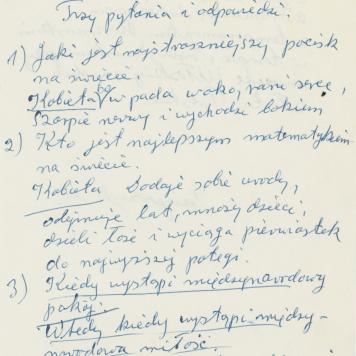 Trzy pytania i odpowiedzi.
1) Jaki jest najstraszniejszy pocisk
na świecie.
Kobieta bo wpada w oko, rani serce,
szarpie nerwy i wychodzi bokiem
2) Kto jest najlepszym matematykiem
na świecie.
Kobieta Dodaje sobie urody,
odejmuje lat, mnoży dzieci,
dzieli łoże i wyciąga pierwiastek
do najwyższej potęgi.
3) Kiedy wystąpi międzynarodowy
pokój.
Wtedy kiedy wystąpi między-
narodowa miłość.